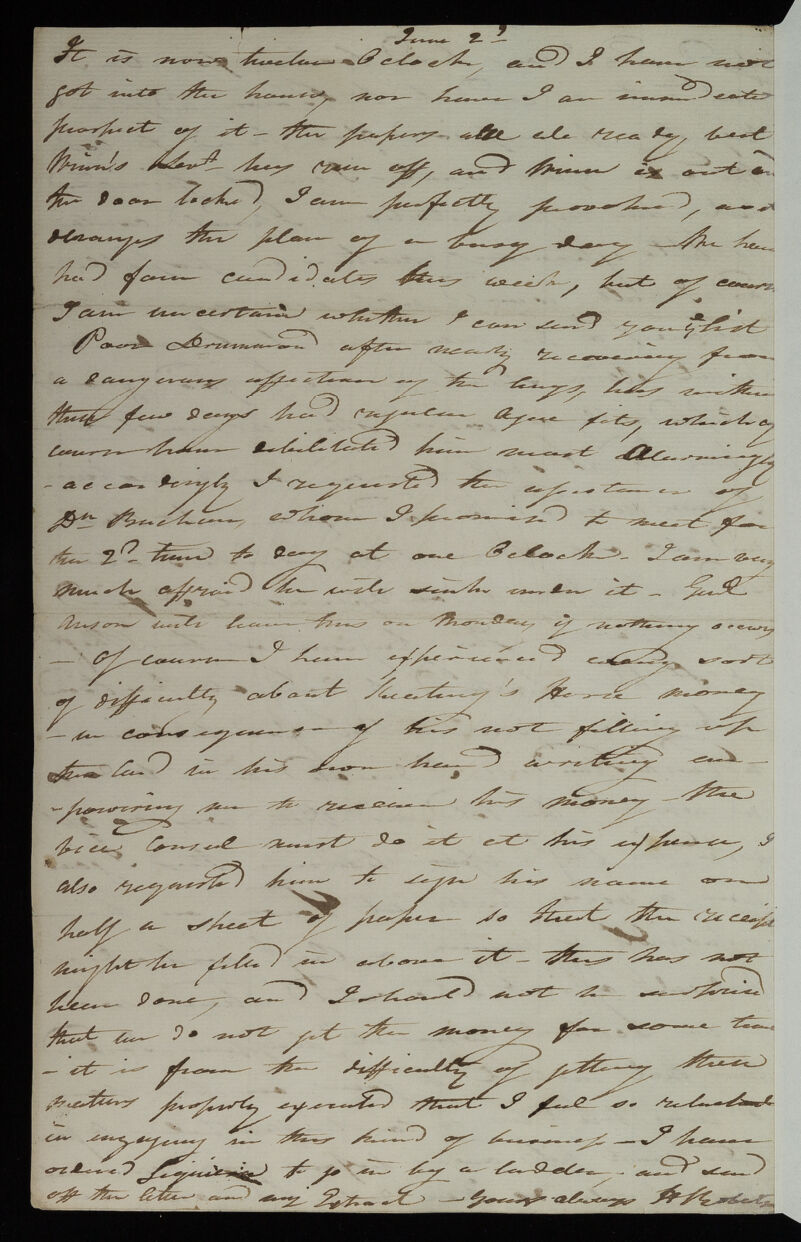 June 2d
It is now twelve OClock, and I have not
got into the house, nor have I an immediate
prospect of it – the papers all are ready, but
Winn's Servt has run off, and Winn is out and
the door locked, I am perfectly provoked, and
deranges the plan of a busy day – We have
had four candidates this week, but of course
I am uncertain whether I can send you a list
Poor Drummond after nearly recovering from
a dangerous affection of the lungs, has within
these few days had regular Ague fits, which of
course have debilitated him most Alarmingly
– accordingly I requested the assistance of
Dr Buchan, whom I promised to meet for
the 2d time to day at one OClock – I am very
much afraid he will sink under it – Genl
Anson will leave this on Monday if nothing occurs
– Of course I have experienced every sort
of difficulty about Keating's Horse money
– in consequence of his not filling up
the in his own hand writing em-
-powering me to receive his money – the
vice Consul must do it at his expense, I
also requested him to sign his name on
half a sheet of paper so that the receipt
might be filled in above it – this has not
been done, and I should not be surprised
that we do not get the money for some time
– it is from the difficulty of getting these
matters properly executed that I feel so reluctant
in engaging in this kind of business – I have
ordered to go in by a ladder, and send
off the letter and my Extract – Yours always H